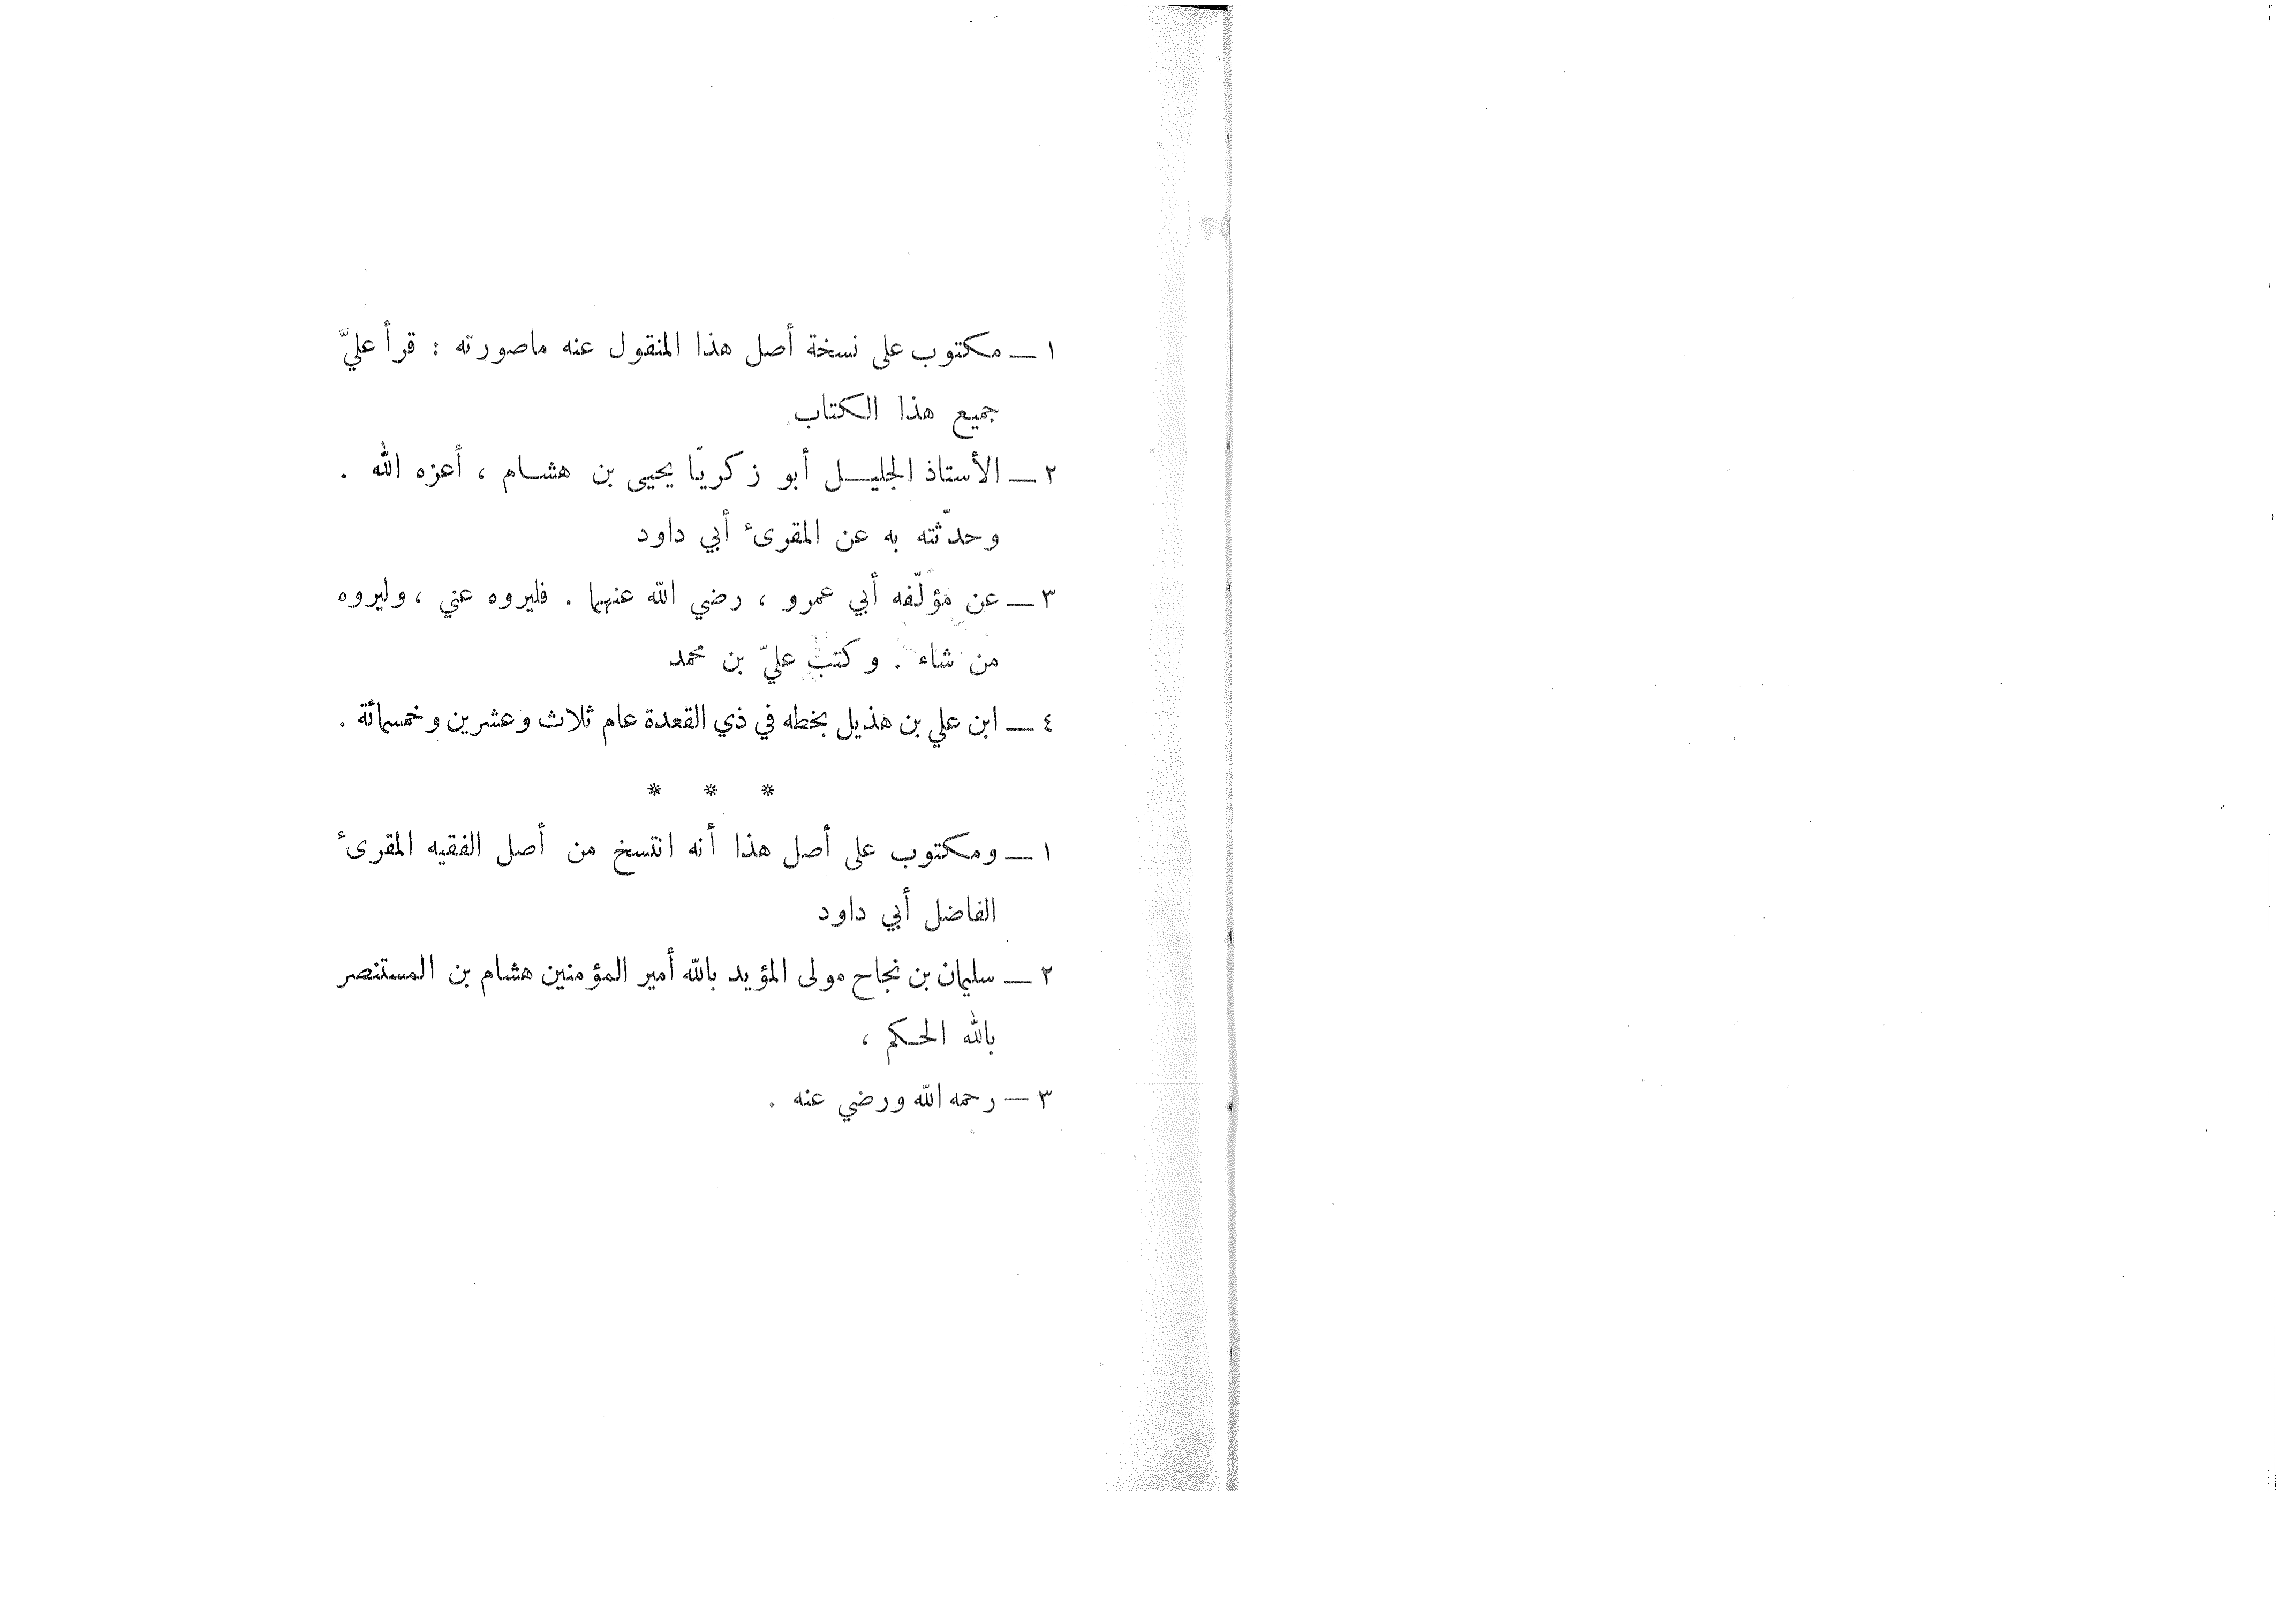 ١ — مكتوب على نسخة أصل هذا المنقول عنه ماصورته : قرأ عليَّ
جميع هذا الكتاب
٢ — الأستاذ الجليل أبو زكريّا يحيى بن هشام ، أعزه الله .
وحدّثته به عن المقرىء أبي داود
٣ — عن مؤلّفه أبي عمرو ، رضي الله عنهما . فليروه عني ، وليروه
من شاء . وكتب عليّ بن محمد
٤ — ابن علي بن هذيل بخطه في ذي القعدة عام ثلاث وعشرين وخمسمائة .
* * *
١ — ومكتوب على أصل هذا أنه انتسخ من أصل الفقيه المقرىء
الفاضل أبي داود
٢ — سليمان بن نجاح مولى المؤيد بالله أمير المؤمنين هشام بن المستنصر
بالله الحكم ،
٣ — رحمه الله ورضي عنه .